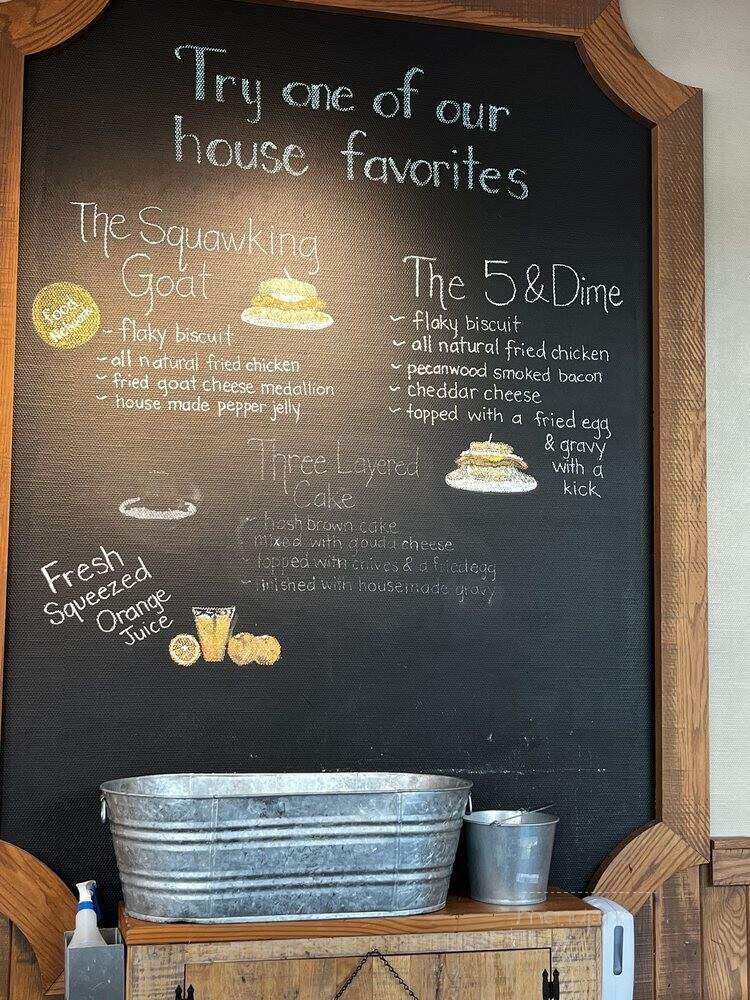 Try one of our
house favorites
The Squawking
Goat
Food
Network
~ flaky biscuit
~ all natural fried chicken
~ fried goat cheese medallion
~ house made pepper jelly
The 5 & Dime
~ flaky biscuit
~ all natural fried chicken
~ pecanwood smoked bacon
~ cheddar cheese
~ topped with a fried egg
& gravy
with a
kick
Three Layered
Cake
~ hash brown cake
mixed with gouda cheese
~ topped with chives & a fried egg
~ finished with housemade gravy
Fresh
Squeezed
Orange
Juice